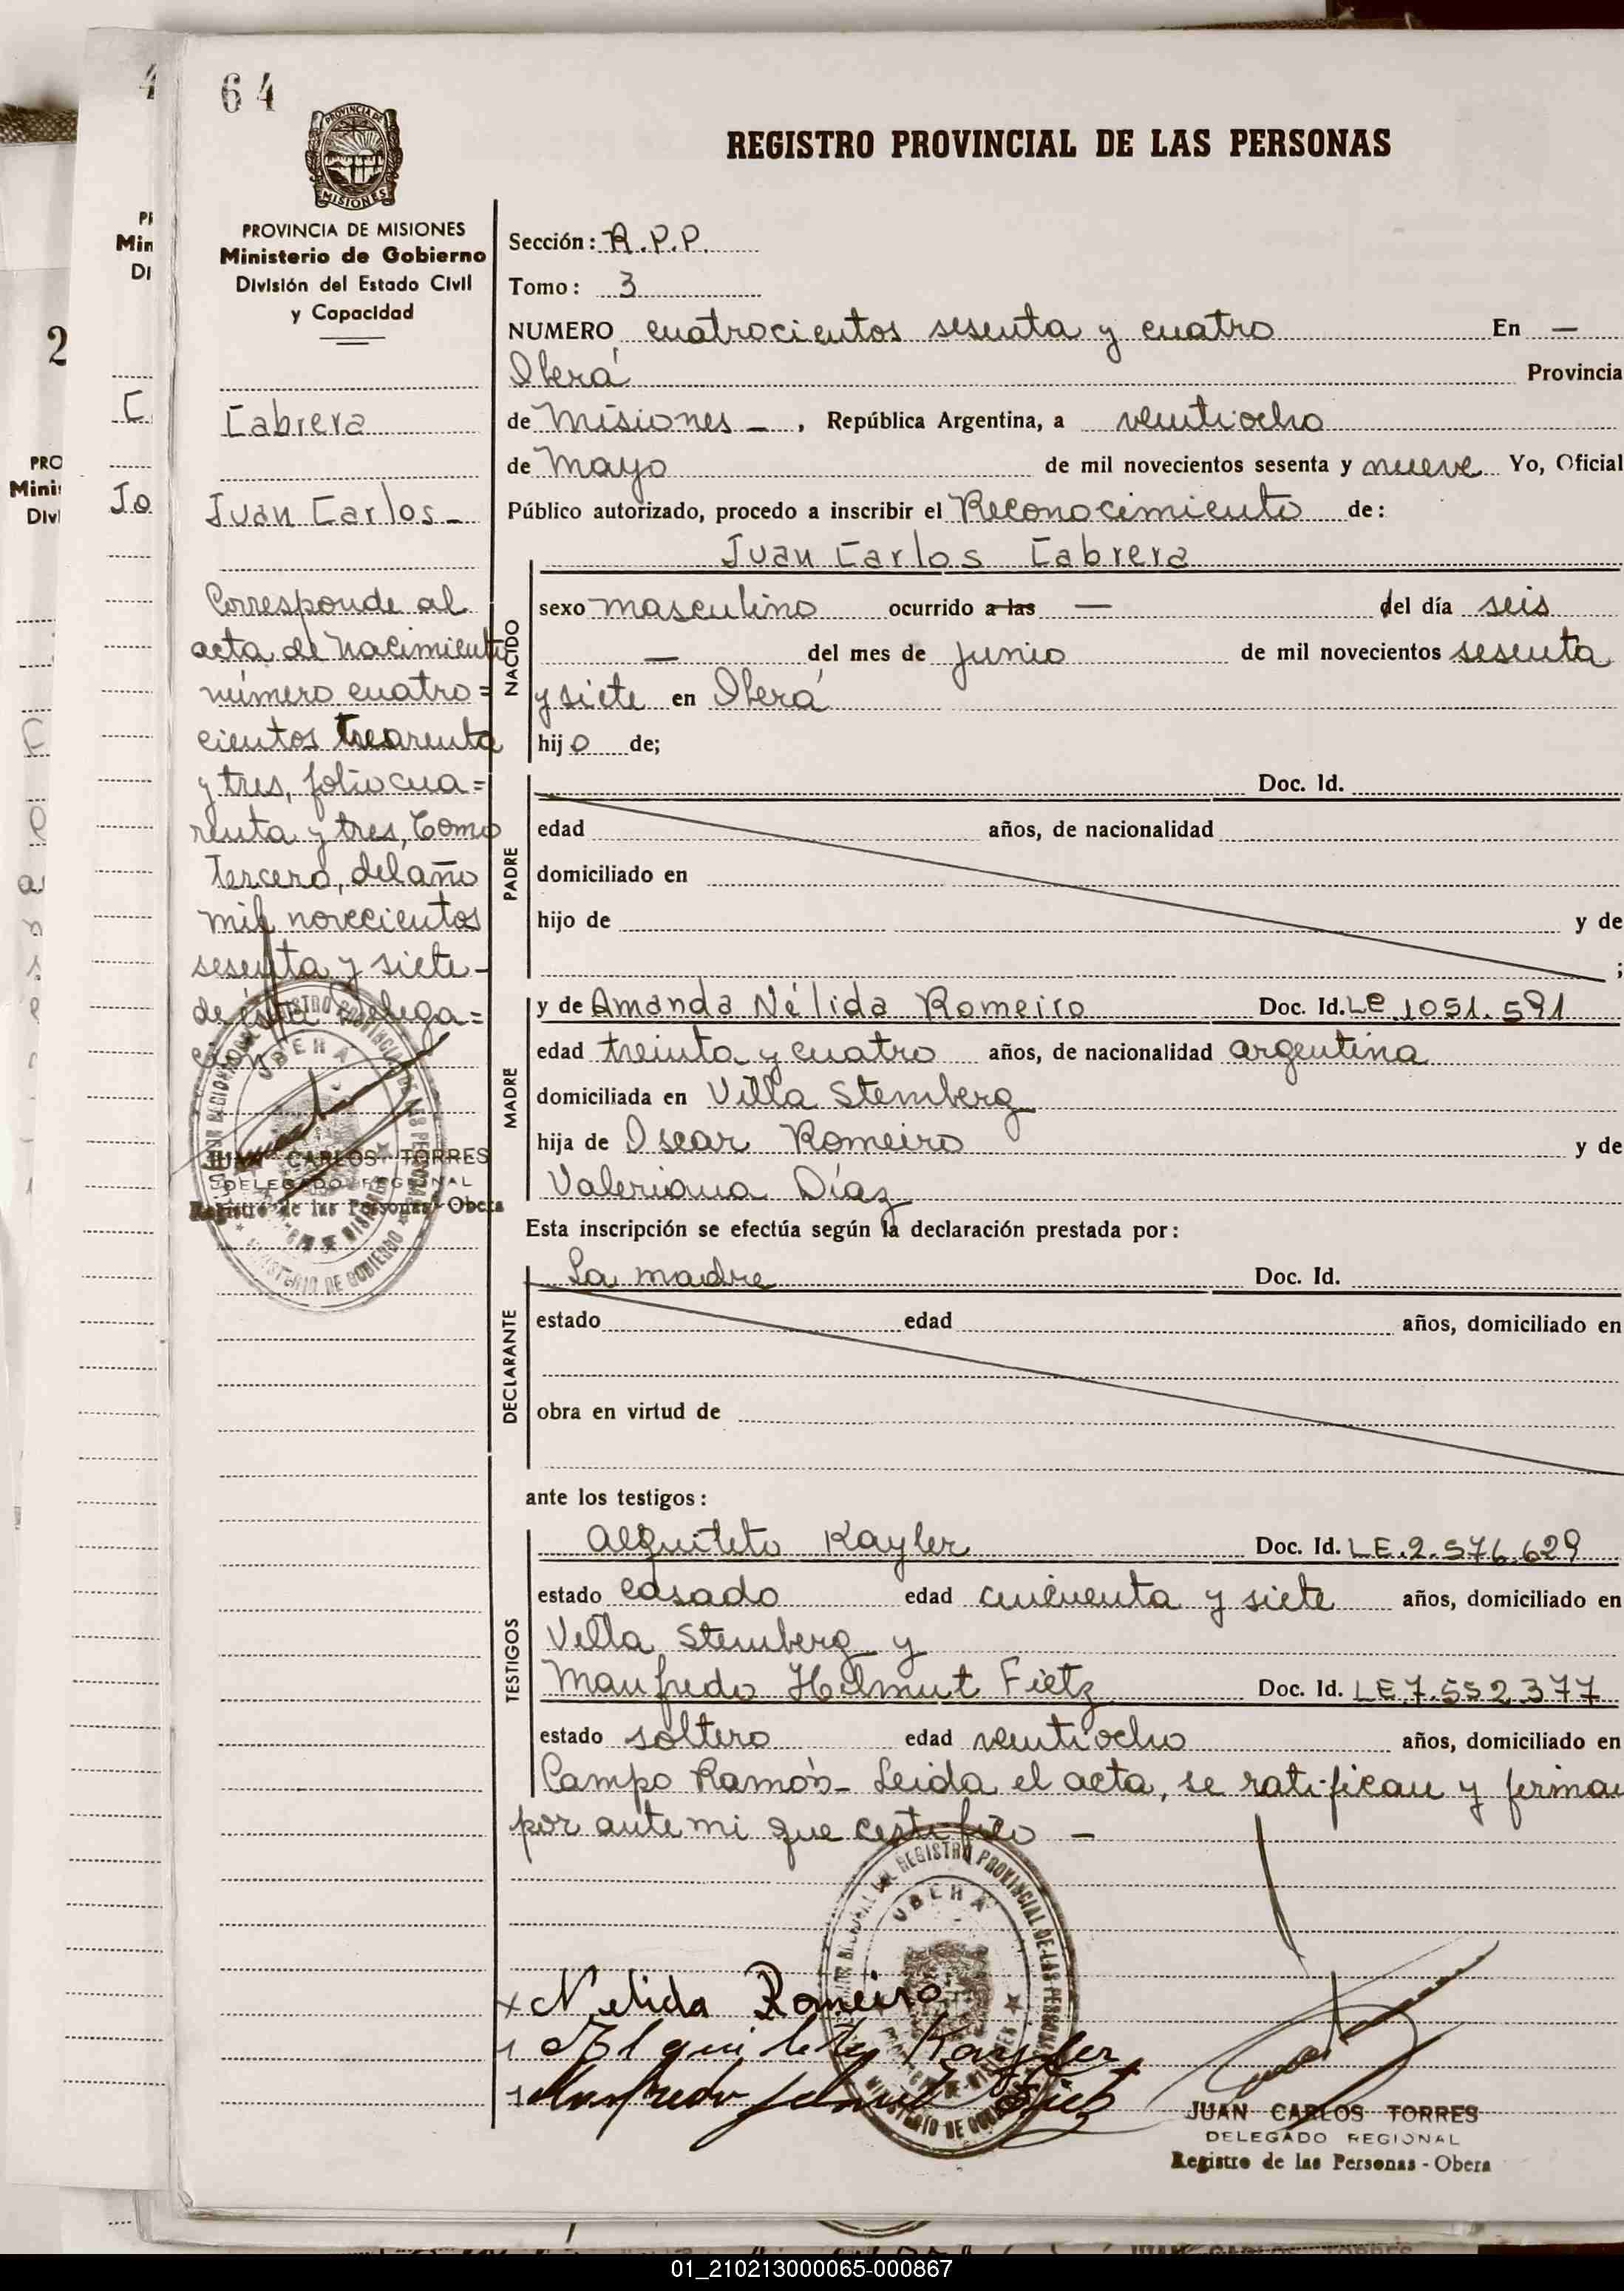 64
PROVINCIA DE
MISIONES
PROVINCIA DE MISIONES
Ministerio de Gobierno
División del Estado Civil
y Capacidad
Cabrera
Juan Carlos -
Corresponde al
acta de nacimiento
número cuatro=
cientos
y tres, folio cua=
renta y tres, Tomo
Tercero, del año
mil novecientos
sesenta y siete -
de esta Delega=
ción
JUAN CARLOS TORRES
DELEGADO REGIONAL
Registro de las Personas - Obera
REGISTRO PROVINCIAL DE LAS PERSONAS
Sección: R.P.P.
Tomo: 3
NUMERO cuatrocientos sesenta y cuatro En —
Oberá Provincia
de Misiones - , República Argentina, a veintiocho
de Mayo de mil novecientos sesenta y nueve Yo, Oficial
Público autorizado, procedo a inscribir el Reconocimiento de:
Juan Carlos Cabrera
NACIDO
sexo masculino ocurrido a las — del día seis
— del mes de junio de mil novecientos sesenta
y siete en Oberá
hijo de;
PADRE
Doc. Id.
edad años, de nacionalidad
domiciliado en
hijo de y de
;
MADRE
y de Amanda Nélida Romeiro Doc. Id. LE 1051.591
edad treinta y cuatro años, de nacionalidad argentina
domiciliada en Villa Stemberg
hija de Oscar Romeiro y de
Valeriana Díaz
Esta inscripción se efectúa según la declaración prestada por:
DECLARANTE
La madre Doc. Id.
estado edad años, domiciliado en
obra en virtud de
ante los testigos:
TESTIGOS
Alquiteto Kayler Doc. Id. LE.2.576.629
estado casado edad cincuenta y siete años, domiciliado en
Villa Stemberg y
Manfredo Helmut Fietz Doc. Id. LE 7.552.377
estado soltero edad veintiocho años, domiciliado en
Campo Ramón - Leida el acta, se ratifican y firman
por ante mi que certifico -
x Nelida Romeiro
JUAN CARLOS TORRES
DELEGADO REGIONAL
Registro de las Personas - Obera
01_210213000065-000867